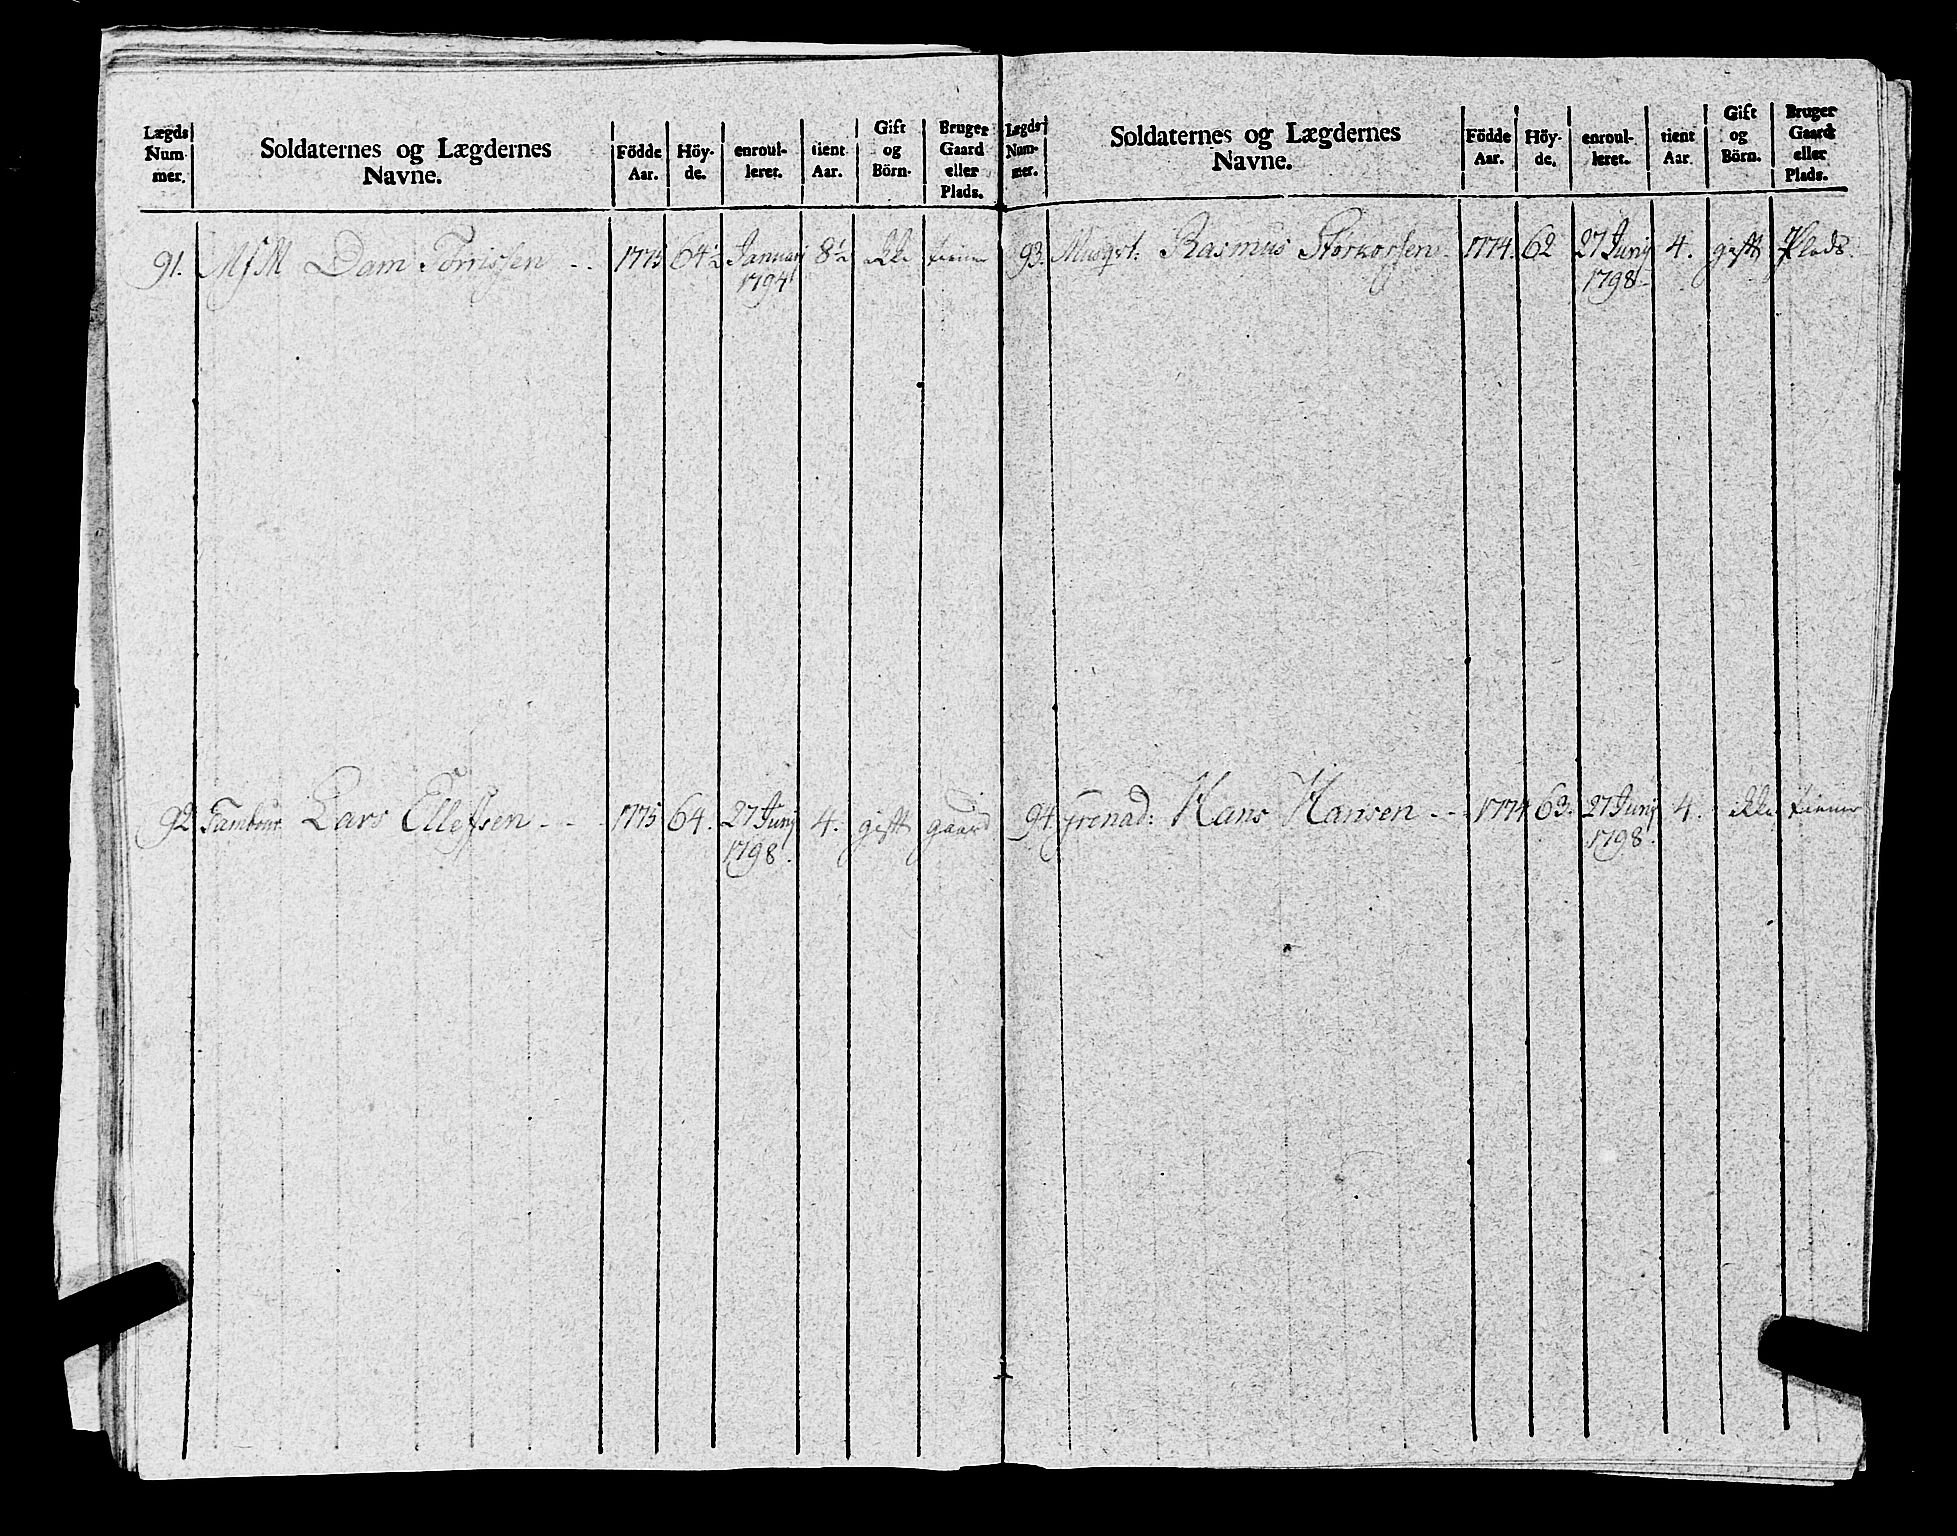 Lægds Num- mer. Soldaternes og Lægdernes Navne. Födde Aar. Höy- de. enroul- leret. tient Aar. Gift og Börn. Bruger Gaard eller Plads.
91. Dam Torrissen - - 1775 64½ Januarj 8½ ikke tiener
1794
92. Tambour Lars Ellefsen - - - 1775 64. 27 Junj 4. gift gaard
1798.
Lægds Num- mer. Soldaternes og Lægdernes Navne. Födde Aar. Höy- de. enroul- leret. tient Aar. Gift og Börn. Bruger Gaard eller Plads.
93. Musqst: Rasmus 1774. 62 27 Junj 4. gift Plads.
1798
94. Grenad: Hans Hansen - - 1774 63. 27 Junj 4. ikke tiener
1798.